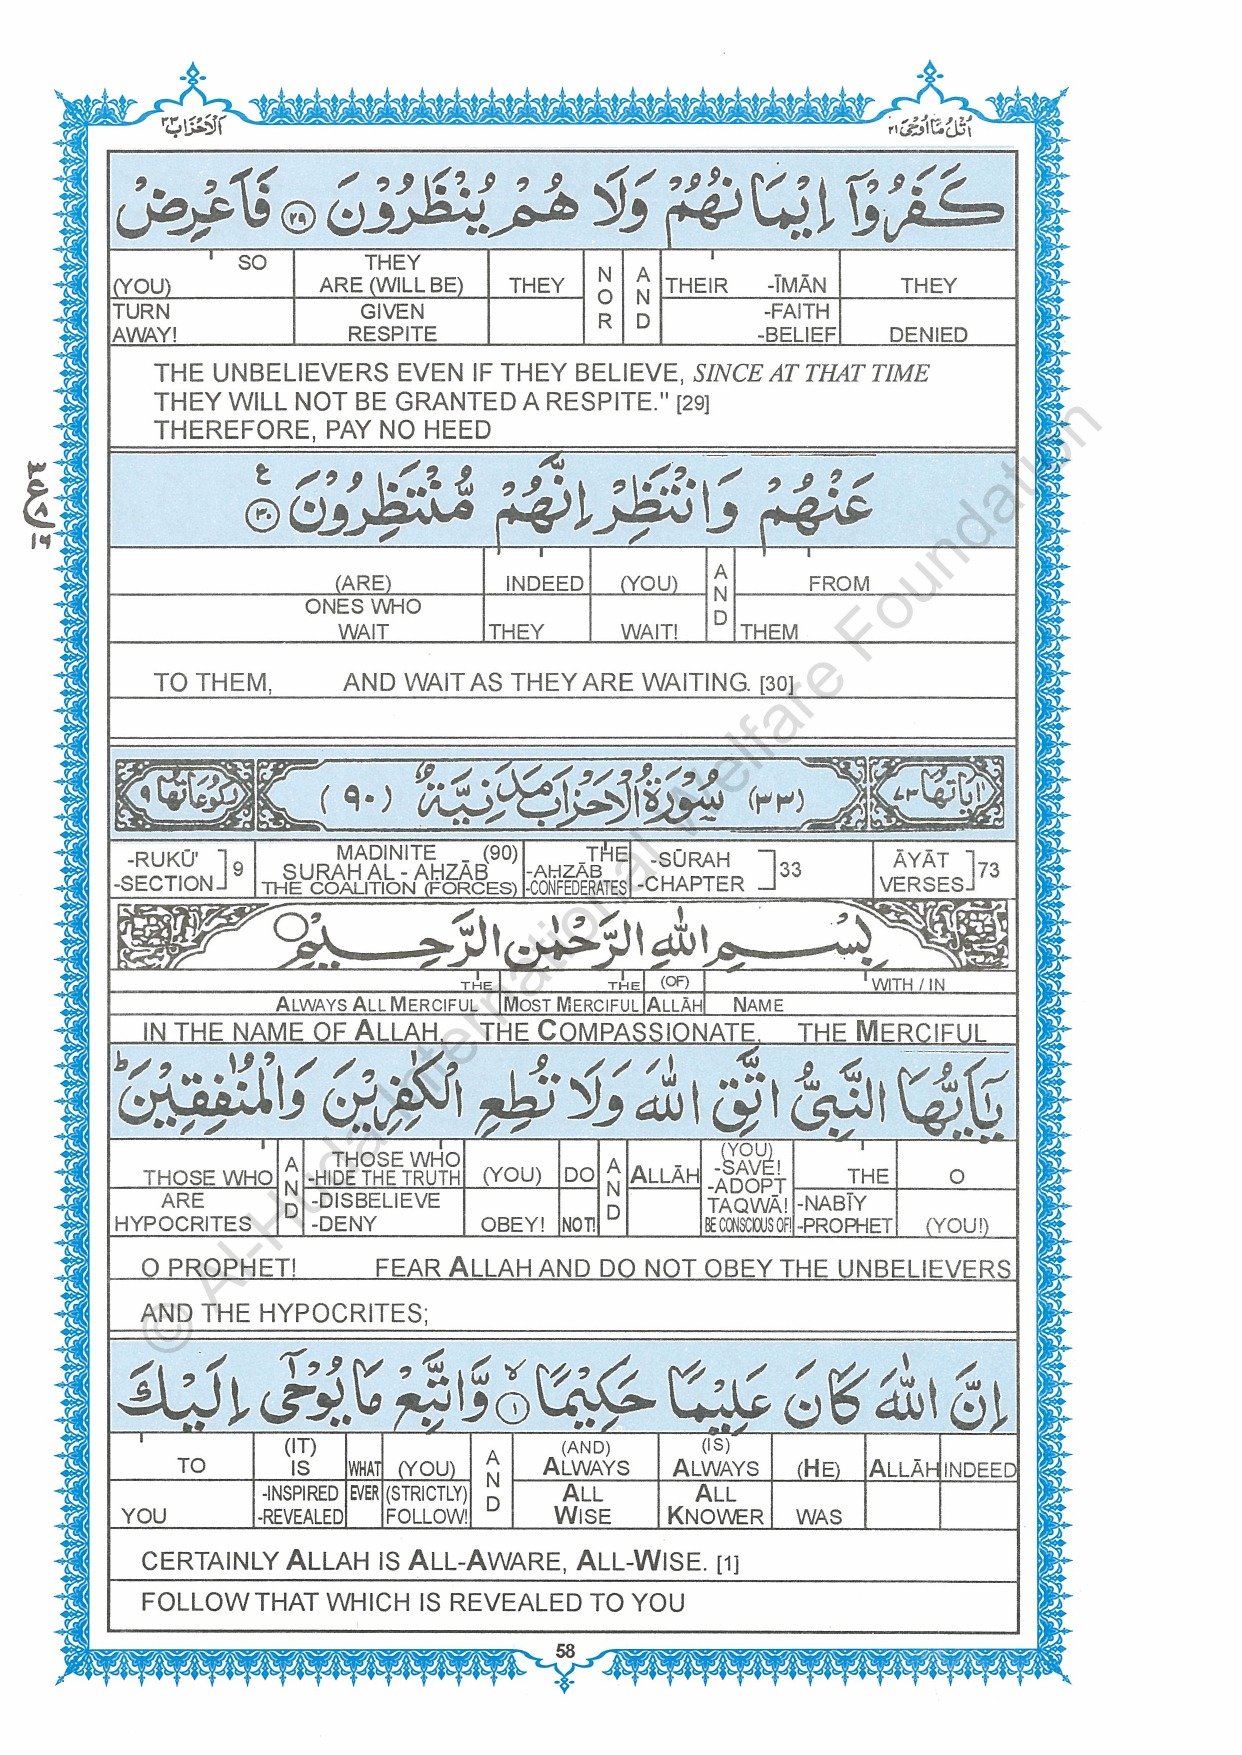 اَلْاَحْزَاب ٣٣
اُتْلُ مَآ اُوْحِیَ ٢١
كَفَرُوْۤا اِيْمَانُهُمْ وَلَا هُمْ يُنْظَرُوْنَ ٢٩ فَاَعْرِضْ
SO THEY
(YOU) ARE (WILL BE) THEY NOR AND THEIR -ĪMĀN THEY
TURN GIVEN -FAITH
AWAY! RESPITE -BELIEF DENIED
THE UNBELIEVERS EVEN IF THEY BELIEVE, SINCE AT THAT TIME
THEY WILL NOT BE GRANTED A RESPITE." [29]
THEREFORE, PAY NO HEED
٣
ع
٨
١٦
عَنْهُمْ وَانْتَظِرْ اِنَّهُمْ مُّنْتَظِرُوْنَ ٣٠ ع
(ARE) INDEED (YOU) AND FROM
ONES WHO
WAIT THEY WAIT! THEM
TO THEM, AND WAIT AS THEY ARE WAITING. [30]
اٰيَاتُهَا ٧٣ (٣٣) سُوْرَةُ الْاَحْزَابِ مَدَنِيَّةٌ (٩٠) رُكُوْعَاتُهَا ٩
-RUKŪ' MADINITE (90) THE -SŪRAH ĀYĀT
9 SURAH AL - AḤZĀB -AḤZĀB 33 73
-SECTION THE COALITION (FORCES) -CONFEDERATES -CHAPTER VERSES
بِسْمِ اللهِ الرَّحْمٰنِ الرَّحِيْمِ
THE THE (OF) WITH / IN
ALWAYS ALL MERCIFUL MOST MERCIFUL ALLĀH NAME
IN THE NAME OF ALLAH, THE COMPASSIONATE, THE MERCIFUL
يٰۤاَيُّهَا النَّبِيُّ اتَّقِ اللهَ وَلَا تُطِعِ الْكٰفِرِيْنَ وَالْمُنٰفِقِيْنَ ط
THOSE WHO AND THOSE WHO (YOU) DO AND ALLĀH (YOU) THE O
-HIDE THE TRUTH -SAVE!
ARE -DISBELIEVE -ADOPT -NABĪY
HYPOCRITES -DENY OBEY! NOT! TAQWĀ! -PROPHET (YOU!)
BE CONSCIOUS OF!
O PROPHET! FEAR ALLAH AND DO NOT OBEY THE UNBELIEVERS
AND THE HYPOCRITES;
اِنَّ اللهَ كَانَ عَلِيْمًا حَكِيْمًا ١ لا وَّاتَّبِعْ مَا يُوْحٰۤى اِلَيْكَ
(IT) AND (AND) (IS)
TO IS WHAT (YOU) ALWAYS ALWAYS (HE) ALLĀH INDEED
-INSPIRED EVER (STRICTLY) ALL ALL
YOU -REVEALED FOLLOW! WISE KNOWER WAS
CERTAINLY ALLAH IS ALL-AWARE, ALL-WISE. [1]
FOLLOW THAT WHICH IS REVEALED TO YOU
58
© Al-Huda International Welfare Foundation